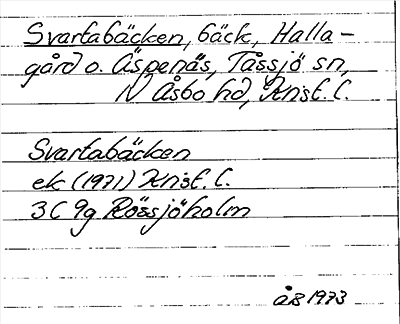 Svartabäcken, bäck, Halla-
gård o. Äspenäs, Tåssjö sn,
N Åsbo hd, Krist. l.
Svartabäcken
ek (1971) Krist. l.
3C 9g Rössjöholm
ÅB 1973